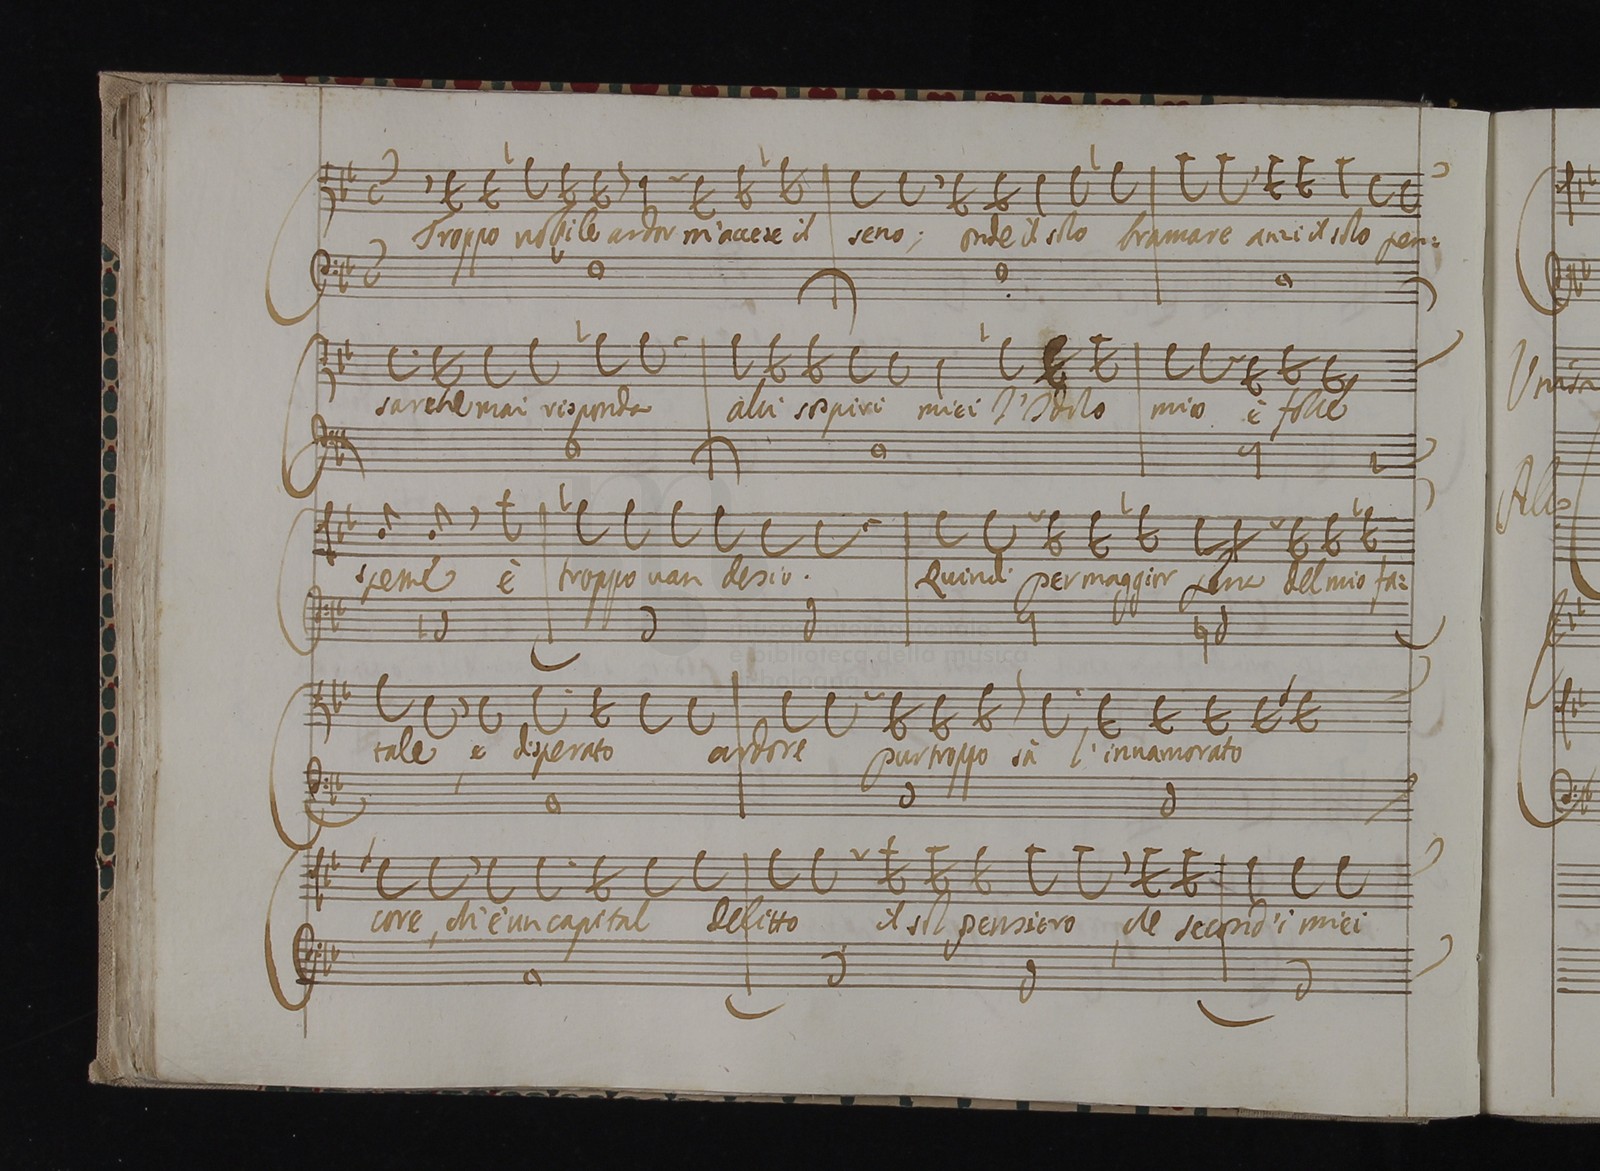 Troppo nobile ardor m'accese il seno; onde il solo bramare anzi il solo pen=
sar che mai risponda alli sospiri miei l'Idolo mio è folle
speme è troppo van desio. Quindi per maggior pena del mio fa=
tale, e disperato ardore pur troppo sà l'innamorato
core, ch'è un capital delitto il sol pensiero, che second'i miei
museo internazionale
e biblioteca della musica
di bologna